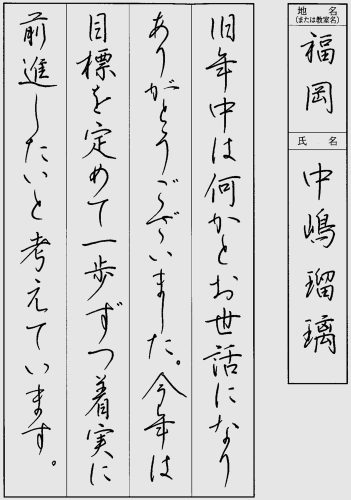 地名
(または教室名)
福岡
氏名
中嶋瑠璃
旧年中は何かとお世話になり
ありがとうございました。今年は
目標を定めて一歩ずつ着実に
前進したいと考えています。